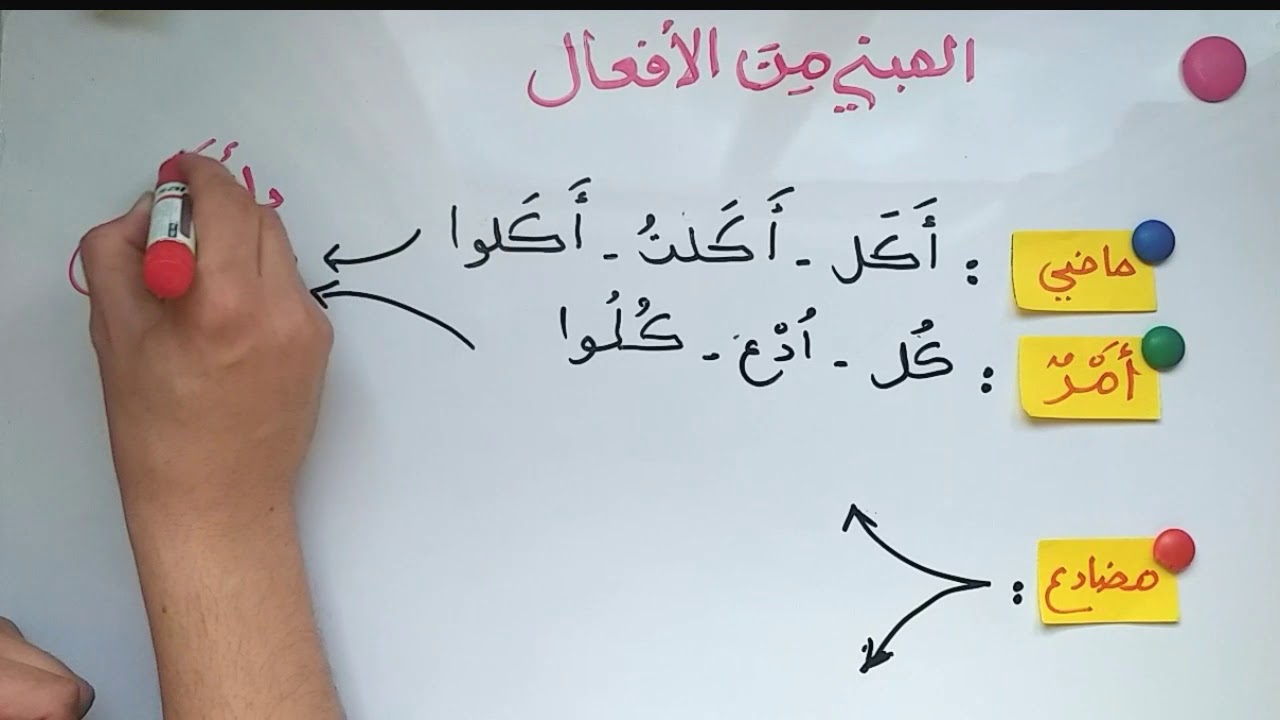 المبني مِنَ الأفعال
ماضي : أَكَل - أَكَلتُ - أَكَلوا
أَمْرٌ : كُل - اُدْع - كُلُوا
مضارع :